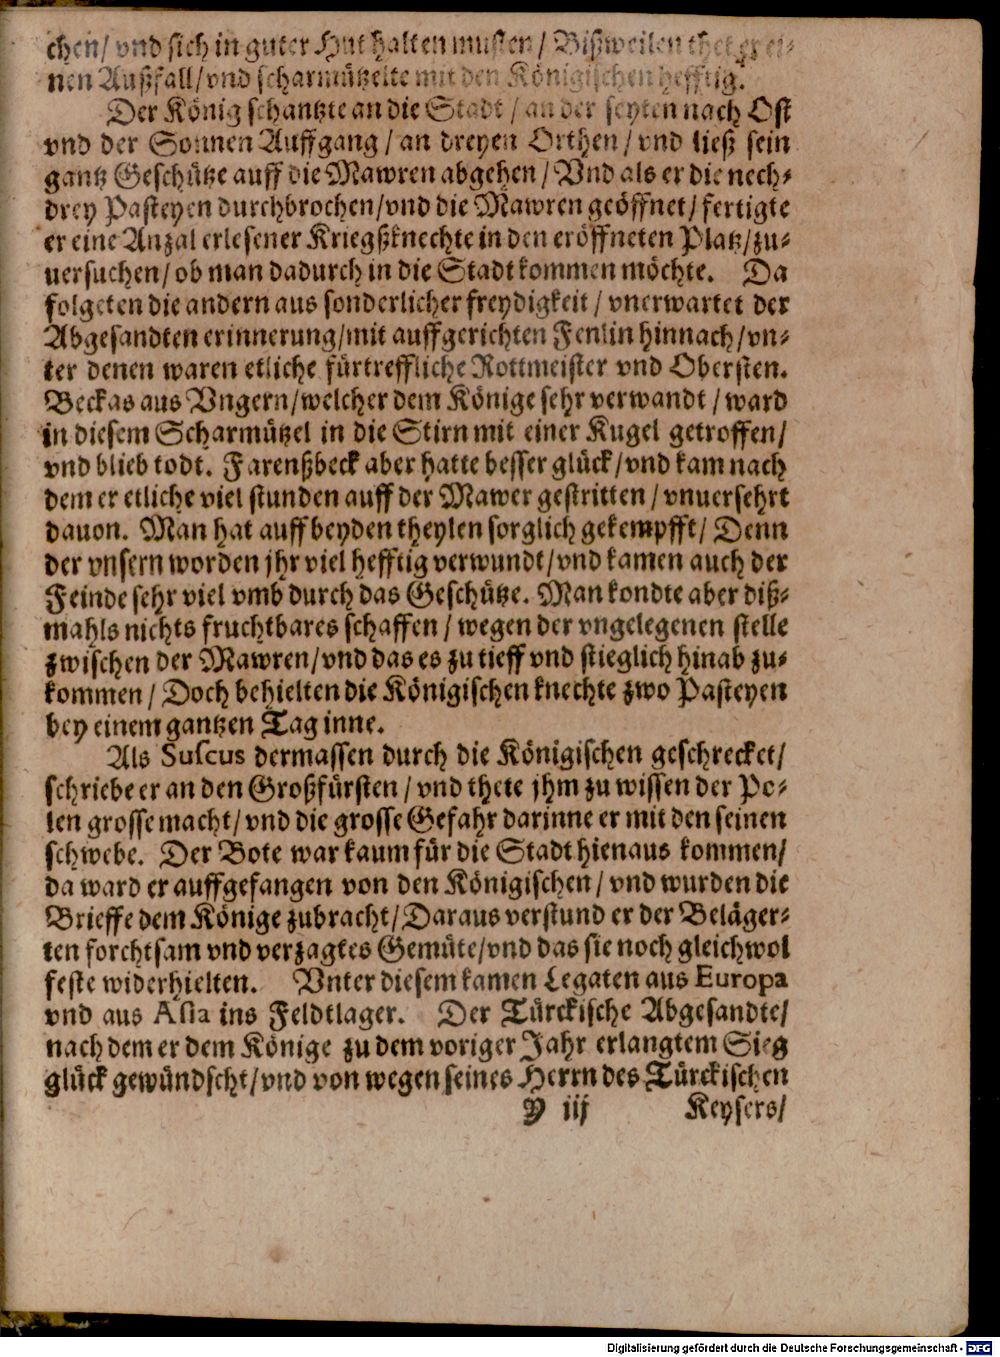 chen/ vnd sich in guter Hut halten musten/ Bißweilen thet er ei-
nen Außfall/vnd scharmützelte mit den Königischen hefftig.
Der König schantzte an die Stadt/ an der seyten nach Ost
vnd der Sonnen Auffgang/ an dreyen Orthen/ vnd ließ sein
gantz Geschütze auff die Mawren abgehen/ Vnd als er die nech-
drey Pasteyen durchbrochen/vnd die Mawren geöffnet/ fertigte
er eine Anzal erlesener Kriegßknechte in den eröffneten Platz/zu-
uersuchen/ ob man dadurch in die Stadt kommen möchte. Da
folgeten die andern aus sonderlicher freydigkeit/ vnerwartet der
Abgesandten erinnerung/mit auffgerichten Fenlin hinnach/vn-
ter denen waren etliche fürtreffliche Rottmeister vnd Obersten.
Beckas aus Vngern/welcher dem Könige sehr verwandt/ ward
in diesem Scharmützel in die Stirn mit einer Kugel getroffen/
vnd blieb todt. Farenßbeck aber hatte besser glück/vnd kam nach
dem er etliche viel stunden auff der Mawer gestritten/ vnuersehrt
dauon. Man hat auff beyden theylen sorglich gekempfft/ Denn
der vnsern worden jhr viel hefftig verwundt/vnd kamen auch der
Feinde sehr viel vmb durch das Geschütze. Man kondte aber diß-
mahls nichts fruchtbares schaffen/ wegen der vngelegenen stelle
zwischen der Mawren/vnd das es zu tieff vnd stieglich hinab zu-
kommen/ Doch behielten die Königischen knechte zwo Pasteyen
bey einem gantzen Tag inne.
Als Suscus dermassen durch die Königischen geschrecket/
schriebe er an den Großfürsten/ vnd thete jhm zu wissen der Po-
len grosse macht/ vnd die grosse Gefahr darinne er mit den seinen
schwebe. Der Bote war kaum für die Stadt hienaus kommen/
da ward er auffgefangen von den Königischen/ vnd wurden die
Brieffe dem Könige zubracht/ Daraus verstund er der Beläger-
ten forchtsam vnd verzagtes Gemüte/vnd das sie noch gleichwol
feste widerhielten. Vnter diesem kamen Legaten aus Europa
vnd aus Asia ins Feldtlager. Der Türckische Abgesandte/
nach dem er dem Könige zu dem voriger Jahr erlangtem Sieg
glück gewündscht/vnd von wegen seines Herrn des Türckischen
y iij Keysers/
Digitalisierung gefördert durch die Deutsche Forschungsgemeinschaft - DFG